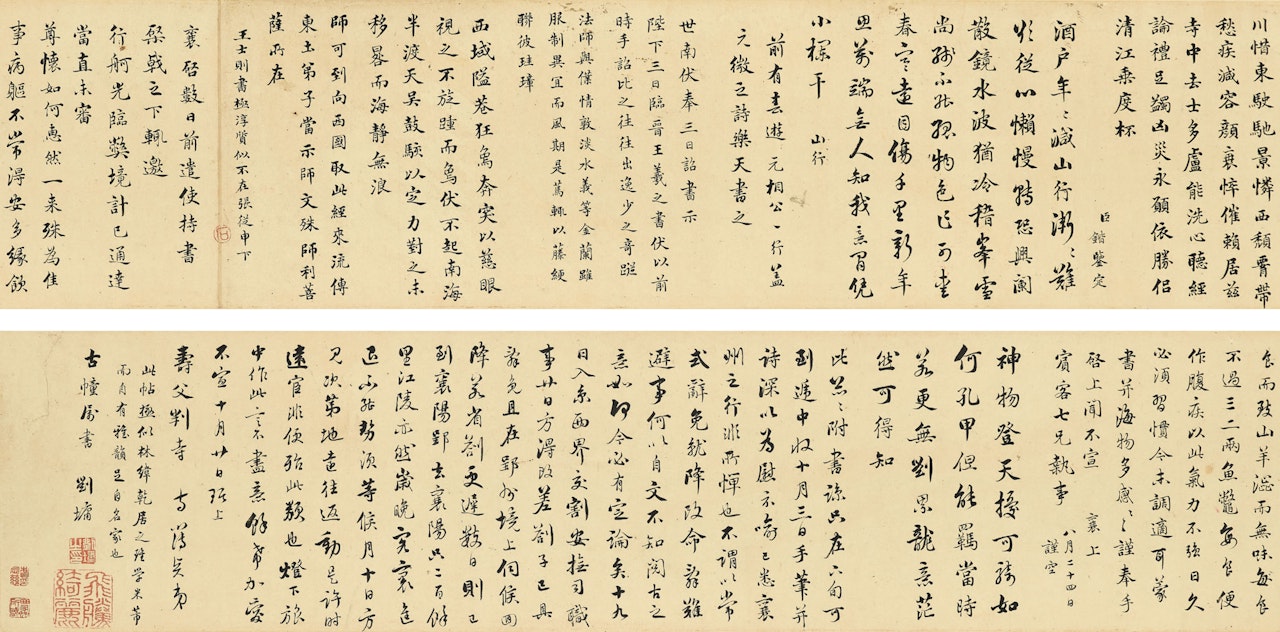 川惜東馳駛景憐西頹霄帶
愁疾減容顏衰悴催賴居茲
寺中去士多盧能洗心聽經
論禮足蠲凶災永願依勝侶
清江乘度杯
臣鍇鑒定
酒戶年〻減山行漸〻難
欲從心懶慢轉恐興闌
散鏡水波猶冷稽峯雪
尚殘不能孤物色乍可愛
春寒遠目傷千里新年
思萬端無人知我意閑凭
小欄干　山行
前有春遊元相公一行蓋
元微之詩樂天書之
世南伏奉三日詔書示
陛下三日臨晉王羲之書伏以前
時手詔比之往往出逸少之奇蹤
法師與僕情敦淡水義等金蘭雖
服制異宜而風期是篤輒以藤綆
聯彼珪璋
西域隘巷狂象奔突以慈眼
視之不旋踵而象伏不起南海
半渡天吳鼓駭以定力對之未
移晷而海靜無浪
師可到向西國取此經來流傳
東土第子當示師文殊師利菩
薩所在
王士則書極淳質似不在張從申下
襄啓數日前遣使持書
棨戟之下輒邀
行舸光臨弊境計已通達
當直未審
尊懷如何惠然一來殊為佳
事病軀不常得安多緣飲
食而致山羊澀而無味每食
不過三二兩魚鼈每食便
作腹疾以此氣力不強日久
必須習慣今未調適耳蒙
書并海物多感〻謹奉手
啓上聞不宣　襄上
賓客七兄執事　八月二十四日
謹空
神物登天擾可騎如
何孔甲但能羈當時
若更無劉累龍意茫
然可得知
此兄〻附書諒只在六旬可
到遞中收十月三日手筆并
詩深以為慰示喻已悉襄
州之行非所憚也不謂以常
式辭免犹降改命嚴難
避事何以自文不知闕古之
意如何今必有定論矣十九
日入京西界交割安撫司職
事廿日方得改差劄子已具
辭免且在郢州境上伺候回
降若省劄更遲數日則已
到襄陽郢去襄陽只二百餘
里江陵亦然歲晚
正不能努須等候月十日方
見次第地遠往返動是許時
遠官非便殆此類也燈下旅
中作此言不盡意餘希加愛
不宣十月廿日琚上
壽父判寺
此帖極似林緯乾居之隆學米芾
而自有穩韻足自名家也
古憧屬書　劉墉